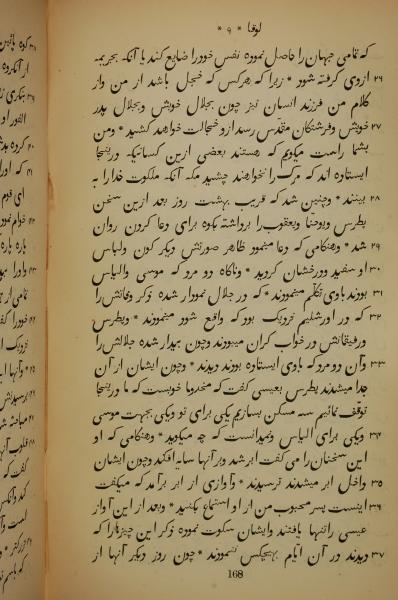 لوقا * ۹ *
که تمامی جهان را حاصل نموده نفس خود را ضایع کند یا آنکه بجریمه
۲۶ ازوی گرفته شود * زیرا که هرکس که خجل باشد از من واز
کلام من فرزند انسان نیز چون بجلال خویش وبجلال پدر
۲۷ خویش وفرشتگان مقدس رسد ازو خجالت خواهد کشید * ومن
بشما راست میگویم که هستند بعضی ازین کسانیکه درینجا
ایستاده اند که مرگ را نخواهند چشید مگر آنکه ملکوت خدا را به
۲۸ بینند * وچنین شد که قریب بهشت روز بعد ازین سخن
پطرس ویوحنا ویعقوب را برداشته بکوه برای دعا کردن روان
۲۹ شد * وهنگامی که دعا مینمود ظاهر صورتش دیگر گون ولباس
۳۰ او سفید ودرخشان گردید * وناگاه دو مرد که موسی والیاس
۳۱ بودند باوی تکلم مینمودند * که در جلال نمودار شده ذکر وفاتش را
۳۲ که در اورشلیم نزدیک بود که واقع شود مینمودند * وپطرس
ورفیقانش در خواب گران میبودند وچون بیدار شده جلالش را
۳۳ وآن دو مرد که باوی ایستاده بودند دیدند * وچون ایشان از آن
جدا میشدند پطرس بعیسی گفت که مخدوما خوبست که ما درینجا
توقف نمائیم سه مسکن بسازیم یکی برای تو ویکی بجهت موسی
۳۴ ویکی برای الیاس ونمیدانست که چه میگوید * وهنگامی که او
این سخنان را می گفت ابر شد وبر آنها سایه افکند وچون ایشان
۳۵ داخل ابر میشدند ترسیدند * وآوازی از ابر برآمد که میگفت
۳۶ اینست پسر محبوب من از او استماع بکنید * وبعد از این آواز
عیسی را تنها یافتند وایشان سکوت نموده ذکر این چیزها را که
۳۷ دیدند در آن ایام بهیچکس ننمودند * چون روز دیگر آنها از
168